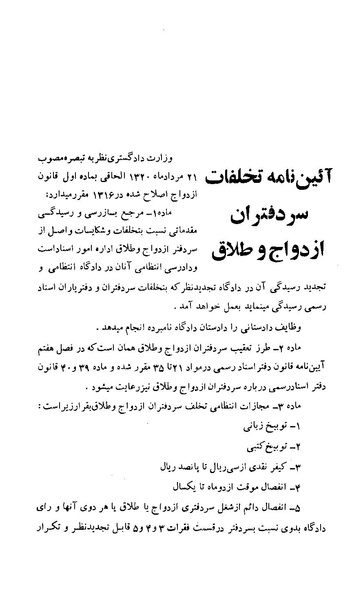 آئین‌نامه تخلفات
سردفتران
ازدواج و طلاق
وزارت دادگستری نظر به تبصره مصوب
۲۱ مردادماه ۱۳۲۰ الحاقی بماده اول قانون
ازدواج اصلاح شده در ۱۳۱۶ مقرر میدارد:
ماده ۱- مرجع بازرسی و رسیدگی
مقدماتی نسبت بتخلفات و شکایات واصل از
سردفتر ازدواج و طلاق اداره امور اسناد است
و دادرسی انتظامی آنان در دادگاه انتظامی و
تجدید رسیدگی آن در دادگاه تجدیدنظر که بتخلفات سردفتران و دفتریاران اسناد
رسمی رسیدگی مینماید بعمل خواهد آمد .
وظایف دادستانی را دادستان دادگاه نامبرده انجام میدهد .
ماده ۲- طرز تعقیب سردفتران ازدواج و طلاق همان است که در فصل هفتم
آیین‌نامه قانون دفتر اسناد رسمی در مواد ۲۱ تا ۳۵ مقرر شده و ماده ۳۹ و ۴۰ قانون
دفتر اسناد رسمی درباره سردفتران ازدواج و طلاق نیز رعایت میشود .
ماده ۳- مجازات انتظامی تخلف سردفتران ازدواج و طلاق بقرار زیر است :
۱- توبیخ زبانی
۲- توبیخ کتبی
۳- کیفر نقدی از سی ریال تا پانصد ریال
۴- انفصال موقت از دو ماه تا یکسال
۵- انفصال دائم از شغل سردفتری ازدواج یا طلاق یا هر دوی آنها و رای
دادگاه بدوی نسبت بسردفتر در قسمت فقرات ۳ و ۴ و ۵ قابل تجدیدنظر و تکرار